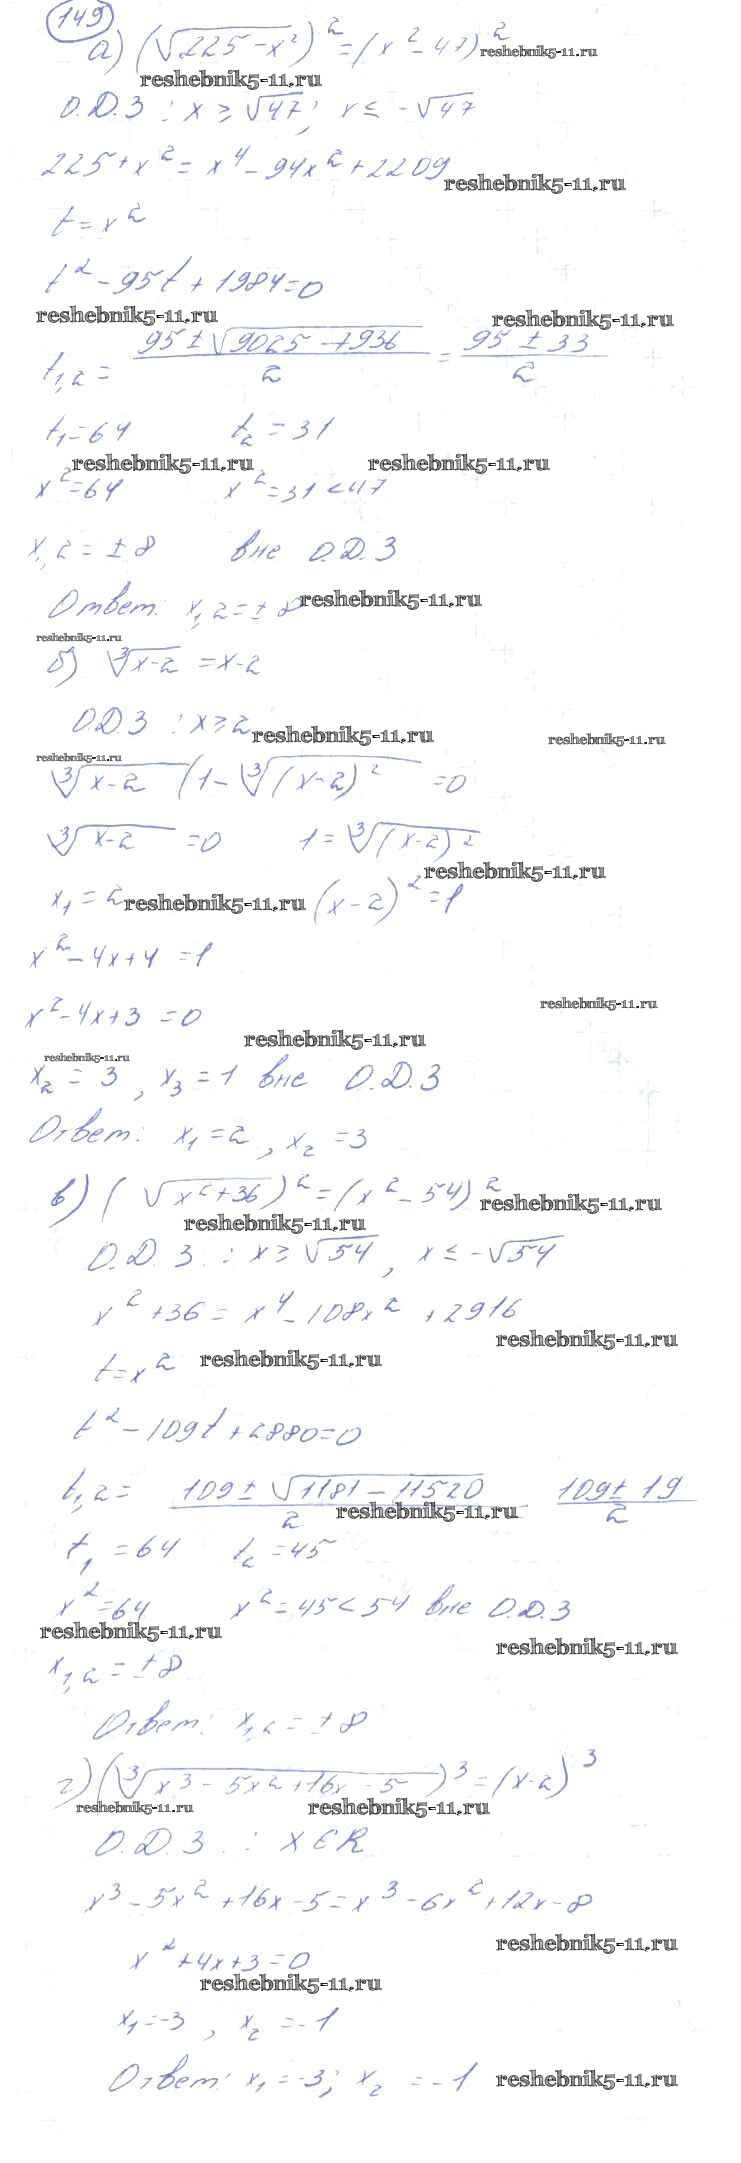 149
а) (√225-x²)² = (x² - 47)² reshebnik5-11.ru
reshebnik5-11.ru
О.Д.З : x ≥ √47; x ≤ -√47
225 + x² = x⁴ - 94x² + 2209 reshebnik5-11.ru
t = x²
t² - 95t + 1984 = 0
reshebnik5-11.ru reshebnik5-11.ru
t₁,₂ = (95 ± √9025 - 7936)/2 = (95 ± 33)/2
t₁ = 64 t₂ = 31
reshebnik5-11.ru reshebnik5-11.ru
x² = 64 x² = 31 < 47
x,₂ = ± 8 вне О.Д.З
Ответ: x₁,₂ = ± 8 reshebnik5-11.ru
reshebnik5-11.ru
б) ∛x-2 = x-2
О.Д.З : x ≥ 2 reshebnik5-11.ru reshebnik5-11.ru
reshebnik5-11.ru
∛x-2 (1 - ∛(x-2)² = 0
∛x-2 = 0 1 = ∛(x-2)²
reshebnik5-11.ru
x₁ = 2 reshebnik5-11.ru (x-2)² = 1
x² - 4x + 4 = 1
x² - 4x + 3 = 0 reshebnik5-11.ru
reshebnik5-11.ru
reshebnik5-11.ru
x₂ = 3, x₃ = 1 вне О.Д.З
Ответ: x₁ = 2, x₂ = 3
в) (√x²+36)² = (x² - 54)² reshebnik5-11.ru
reshebnik5-11.ru
О.Д.З : x ≥ √54, x ≤ -√54
x² + 36 = x⁴ - 108x² + 2916
reshebnik5-11.ru
t = x² reshebnik5-11.ru
t² - 109t + 2880 = 0
t₁,₂ = (109 ± √1181 - 11520)/2 (109 ± 19)/2
reshebnik5-11.ru
t₁ = 64 t₂ = 45
x² = 64 x² = 45 < 54 вне О.Д.З
reshebnik5-11.ru reshebnik5-11.ru
x₁,₂ = ± 8
Ответ: x₁,₂ = ± 8
г) (∛x³ - 5x² + 16x - 5)³ = (x-2)³
reshebnik5-11.ru reshebnik5-11.ru
О.Д.З : X ∈ R
x³ - 5x² + 16x - 5 = x³ - 6x² + 12x - 8
reshebnik5-11.ru
x² + 4x + 3 = 0
reshebnik5-11.ru
x₁ = -3, x₂ = -1
Ответ: x₁ = -3; x₂ = -1 reshebnik5-11.ru